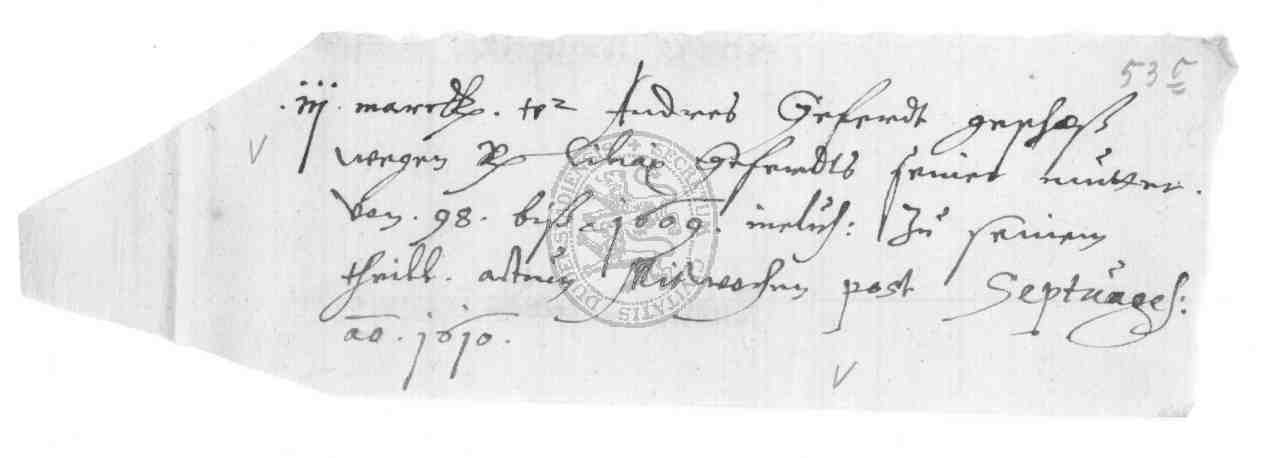 53 c
.iij. marck. te2 Andres Geferdt geschoß
wegen Geferdts seiner mutter.
Von . 98 . biß 1609. inclus: Zu seinem
theill. actum Mitwochen post Septuages:
ao. 1610.
SECRETUM CIVITATIS